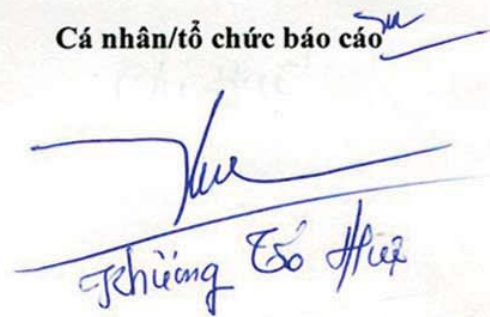 Cá nhân/tổ chức báo cáo
Khương Tố Huệ